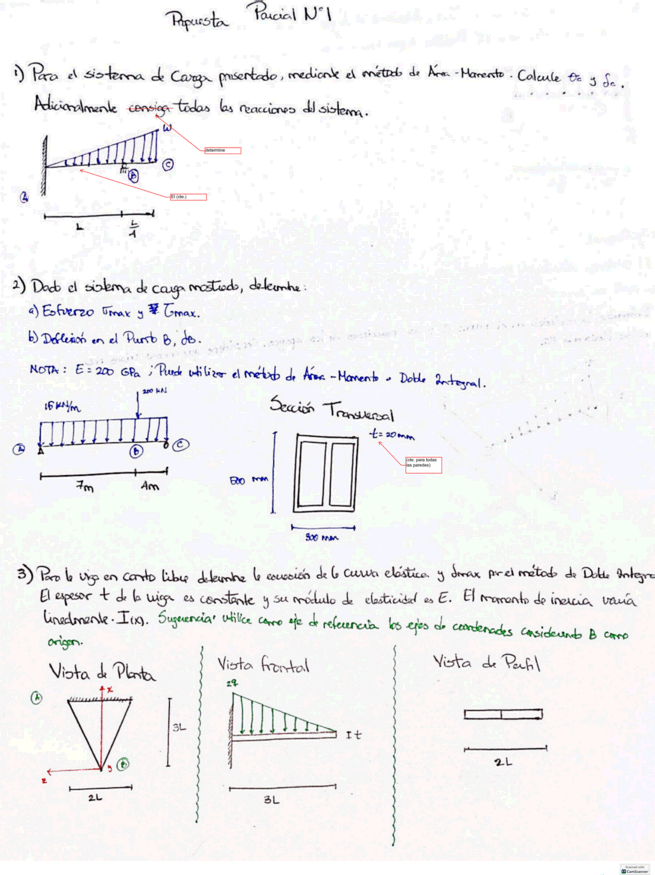 Propuesta Parcial N°1
1) Para el sistema de Carga presentado, mediante el método de Área-Momento. Calcule θc y δc.
Adicionalmente consiga todas las reacciones del sistema.
determine
W
B
C
EI (cte.)
L
2) Dado el sistema de carga mostrado, determine:
a) Esfuerzo σmax y τmax.
b) Deflexión en el Punto B, δB.
NOTA: E = 200 GPa ; Puede utilizar el método de Área-Momento o Doble Integral.
200 kN
15 kN/m
A
B
C
7m
4m
Sección Transversal
t = 20 mm
(cte. para todas
las paredes)
500 mm
300 mm
3) Para la viga en canto libre determine la ecuación de la curva elástica y δmax por el método de Doble Integra
El espesor t de la viga es constante y su módulo de elasticidad es E. El momento de inercia varía
linealmente. I(x). Sugerencia: utilice como eje de referencia los ejes de coordenadas considerando B como
origen.
Vista de Planta
A
x
3L
z
B
2L
Vista frontal
2q
I t
3L
Vista de Perfil
2L
Scanned with
CamScanner